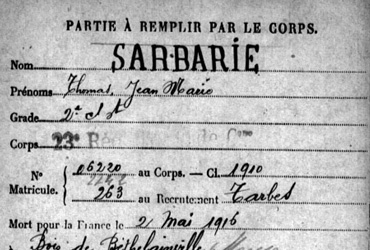 PARTIE À REMPLIR PAR LE CORPS.
Nom SARBARIE
Prénoms Thomas, Jean Marie
Grade 2e
Corps 23e Rég
No 06220 au Corps. — Cl. 1910
Matricule. 263 au Recrutement Tarbes
Mort pour la France le 2 Mai 1916
Bois de Béthelainville